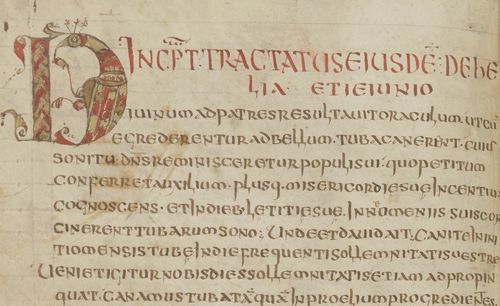 INCP̄T · TRACTATUS EIUSDĒ · DE HE
LIA ET IEIUNIO
DIUINUM AD PATRES RESULTAUIT ORACULUM UT CŪ
ECREDERENTUR AD BELLUM · TUBA CANERENT · CUIUS
SONITU DN̄S REMINISCERETUR POPULI SUI · QUO PETITUM
CONFERRET AUXILIUM · PLUSQ· MISERICORDIE SUE INCENTIU
COGNOSCENS · ET IN DIEB· LETITIE SUE · IN NEOMENIIS SUIS CON
CINERENT TUBARUM SONO · UNDE ET DAUID AIT · CANITE IN INI
TIO MENSIS TUBE IN DIE FREQUENTI SOLLEMNITATIS UESTRE
UENIT IGITUR NOBIS DIES SOLLEMNITATIS ETIAM ADPROPIN
QUAT · CANAMUS TUBA TĀQUĀ IN PROELIUM PROGREDIENTES